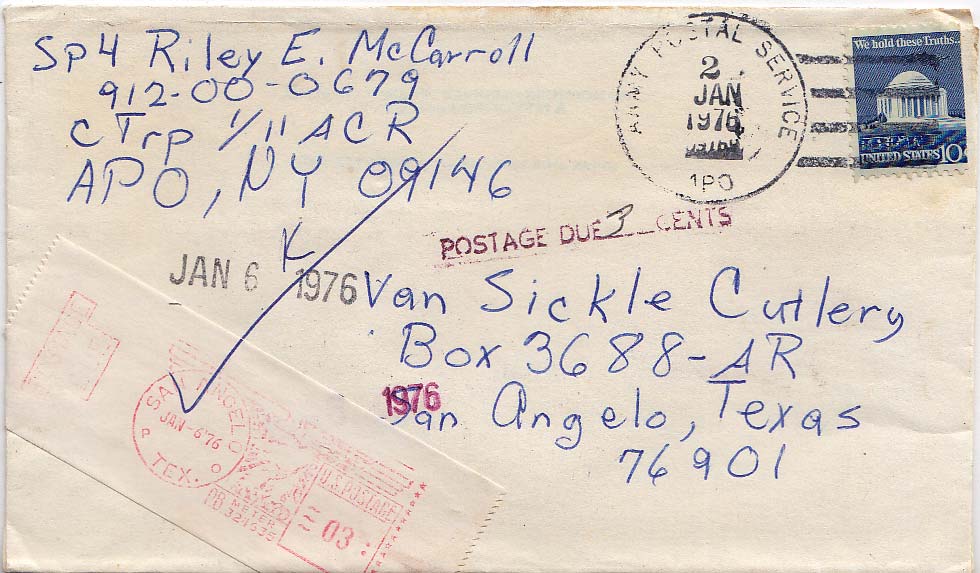 Sp4 Riley E. McCarroll
912-00-0679
C Trp 1/11 ACR
APO, NY 09146
ARMY POSTAL SERVICE
2
JAN
1976
APO
We hold these Truths...
UNITED STATES 10¢
POSTAGE DUE 3 CENTS
K
JAN 6 1976
Van Sickle Cutlery
Box 3688-AR
1976
San Angelo, Texas
76901
SAN ANGELO
JAN-6'76
P O
TEX.
U.S. POSTAGE
03
PB METER